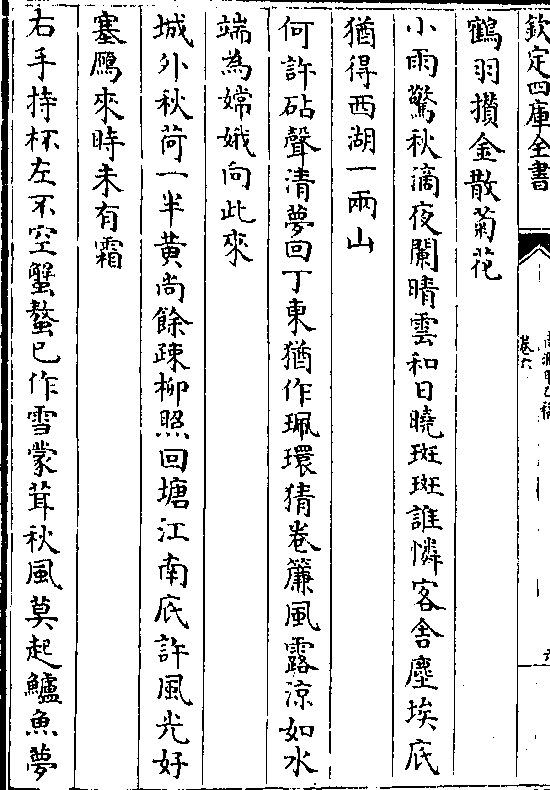 欽定四庫全書
卷六
鶴羽攢金散菊花
小雨驚秋滴夜闌晴雲和日曉斑斑誰憐客舍塵埃底
猶得西湖一兩山
何許砧聲清夢回丁東猶作珮環猜卷簾風露涼如水
端為嫦娥向此來
城外秋荷一半黃尚餘疎柳照回塘江南底許風光好
塞鴈來時未有霜
右手持杯左不空蟹螯已作雪蒙茸秋風莫起鱸魚夢